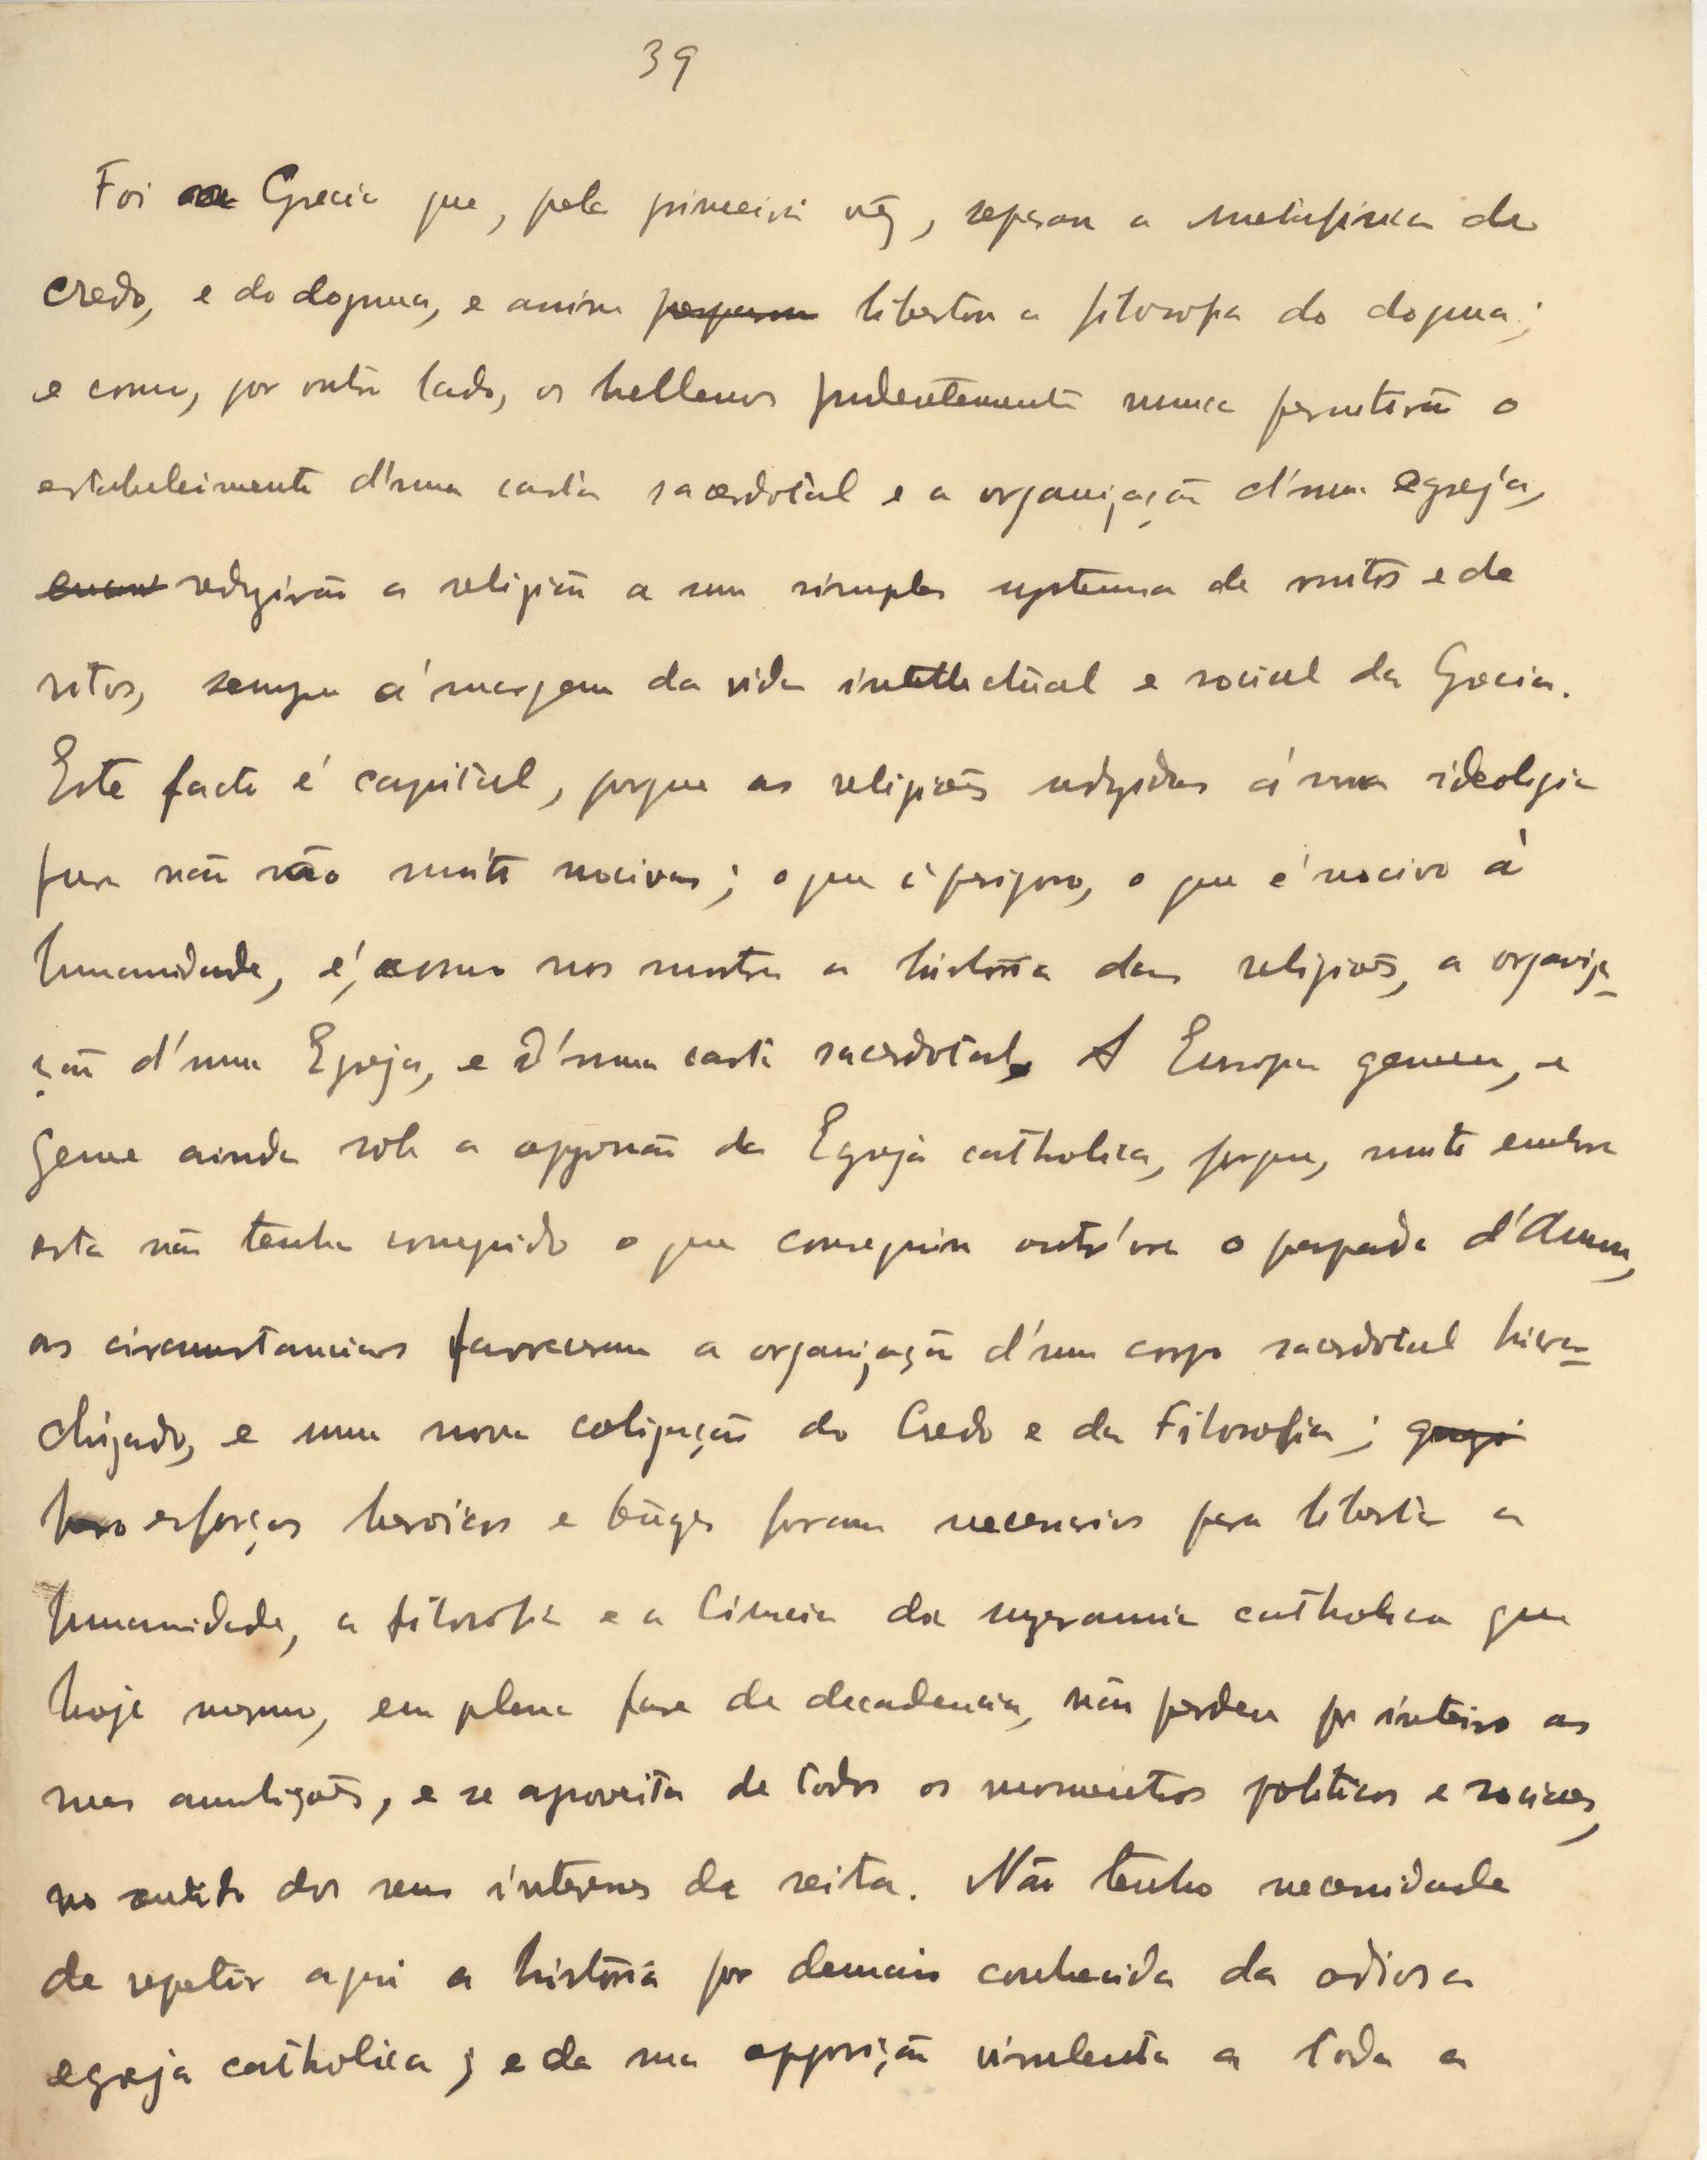 39
Foi a Grecia que, pela primeira vez, separou a metafisica do
credo, e do dogma, e assim libertou a filosofia do dogma;
e como, por outro lado, os hellenos prudentemente nunca permitirão o
estabeleimento d'uma casta sacerdotal e a organização d'uma egreja,
reduzirão a religião a um simples systema de mitos e de
ritos, sempre á margem da vida intellectual e social da Grecia.
Este facto é capital, porque as religiões reduzidas á sua ideologia
pura não são muito nocivas; o que é perigoso, o que é nocivo á
humanidade, é, como nos mostra a historia das religiões, a organiza-
ção d'uma Egreja, e d'uma casta sacerdotal. A Europa gemeu, e
geme ainda sob a oppressão da Egreja catholica, porque, muito embora
esta não tenha conseguido o que conseguiu outr'ora o papado d'Amon,
as circumstancias favoreceram a organização d'um corpo sacerdotal hierar-
chizado, e uma nova coligação do Credo e da Filosofia;
esforços heroicos e foram necessarios para libertar a
humanidade, a filosofia e a Ciencia da suzerannia catholica que
hoje mesmo, em plena fase de decadencia, não perdeu por inteiro as
suas ambições, e se aproveita de todos os momentos politicos e sociaes,
no sentido dos seus interesses de seita. Não tenho necessidade
de repetir aqui a história por demais conhecida da odiosa
egreja catholica; e da sua opposição virulenta a toda a